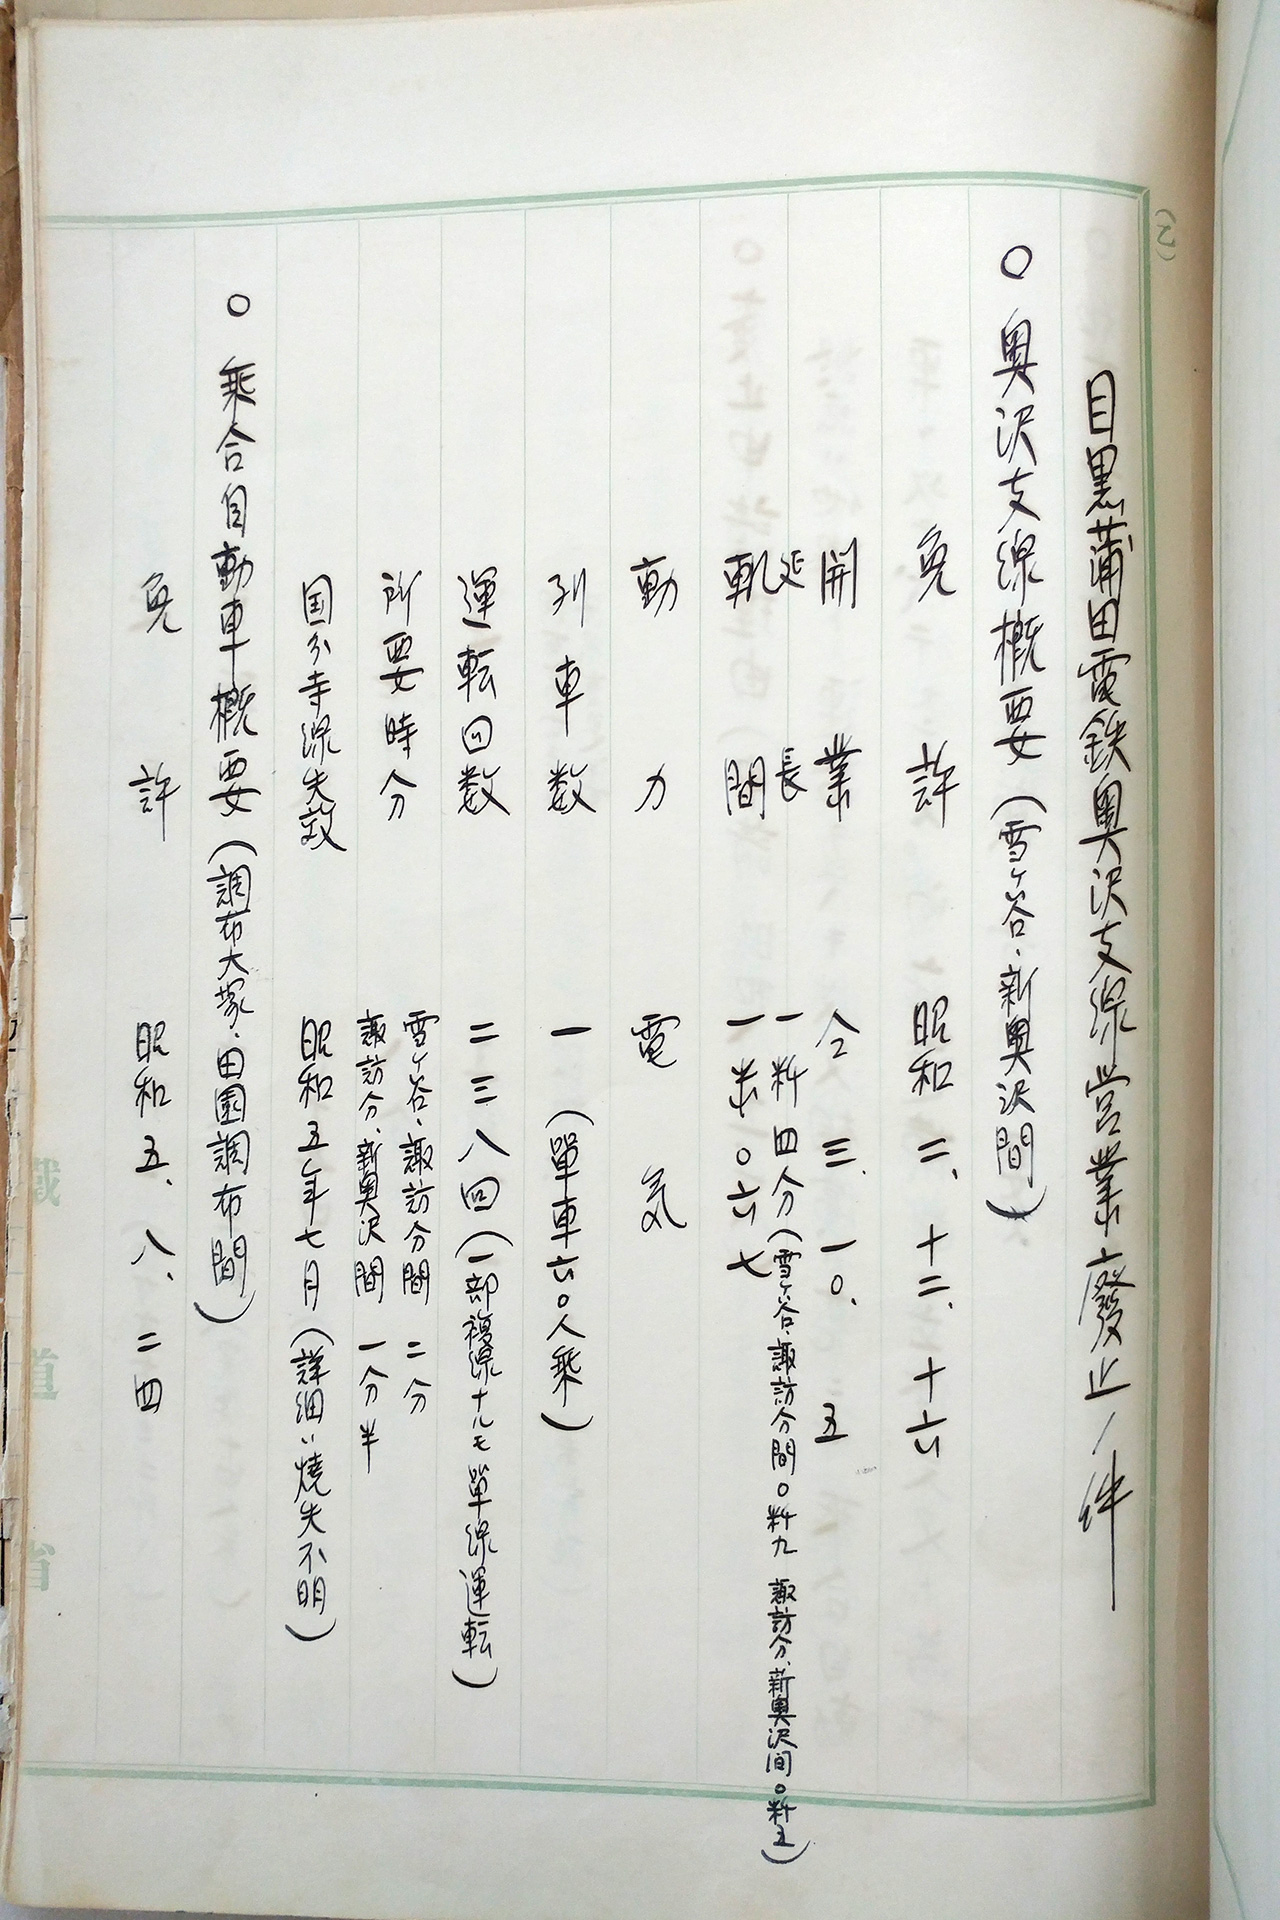 目黒蒲田電鉄奥沢支線営業廢止ノ件
○ 奥沢支線概要(雪ヶ谷、新奥沢間)
免許 昭和二、十二、十六
開業 仝 三、一〇、五
延長 一粁四分(雪ヶ谷、諏訪分間〇粁九 諏訪分、新奥沢間〇粁五)
軌間 一米〇六七
動力 電気
列車数 一(單車六〇人乗)
運転回数 二三八回(一部複線ナルモ單線運転)
所要時分 雪ヶ谷、諏訪分間 二分
諏訪分、新奥沢間 一分半
国分寺線失效 昭和五年七月(詳細ハ燒失不明)
○ 乗合自動車概要(調布大塚、田園調布間)
免許 昭和五、八、二四
鐵道省